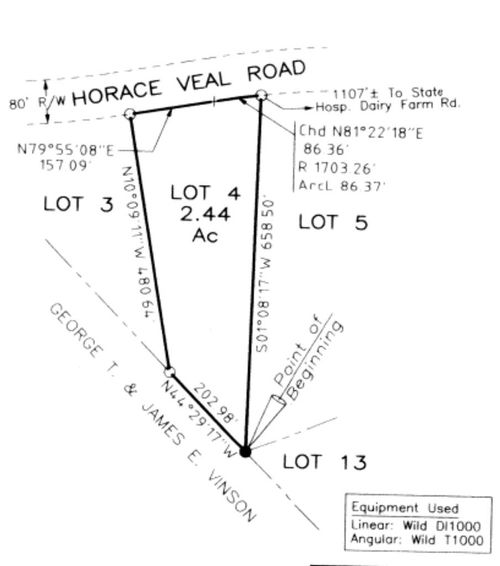 80' R/W
HORACE VEAL ROAD
1107'± To State
Hosp. Dairy Farm Rd.
N79°55'08"E
157.09'
Chd N81°22'18"E
86.36'
R 1703.26'
ArcL 86.37'
LOT 3
N10°09'11"W 480.64'
LOT 4
2.44
Ac
S01°08'17"W 658.50'
LOT 5
GEORGE T. & JAMES E. VINSON
202.98'
N44°29'17"W
Point of
Beginning
LOT 13
Equipment Used
Linear: Wild DI1000
Angular: Wild T1000